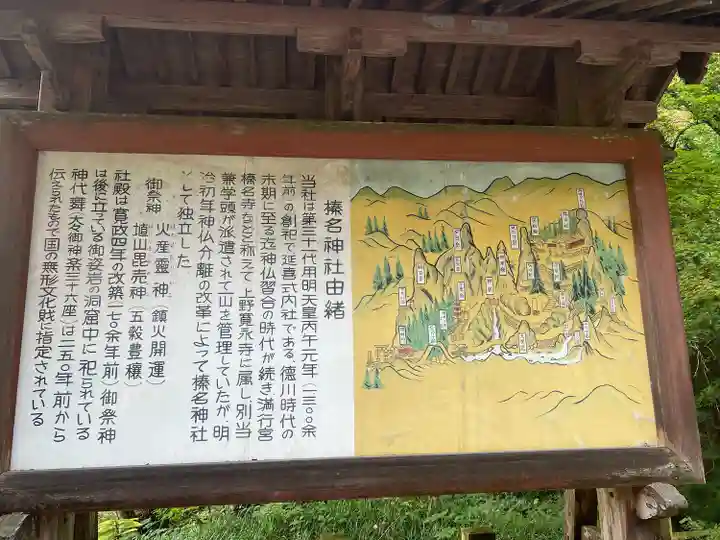 榛名神社由緒
当社は第三十代用明天皇丙午元年(一三〇〇余
年前)の創祀で延喜式内社である、徳川時代の
末期に至る迄神仏習合の時代が続き満行宮
榛名寺などと称えて、上野寛永寺に属し、別当
兼学頭が派遣されて一山を管理していたが、明
治初年神仏分離の改革によって榛名神社
として独立した
御祭神 火産霊神(鎮火開運)
埴山毘売神(五穀豊穣)
社殿は寛政四年の改築(一七〇余年前)御祭神
は後に立っている御姿岩の洞窟中に祀られている
神代舞(太々御神楽三十六座)は二五〇年前から
伝えられたもので国の無形文化財に指定されている